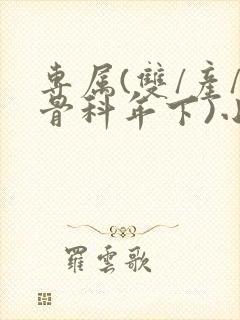 專属(雙/產/
骨科年下)小
羅雲歌